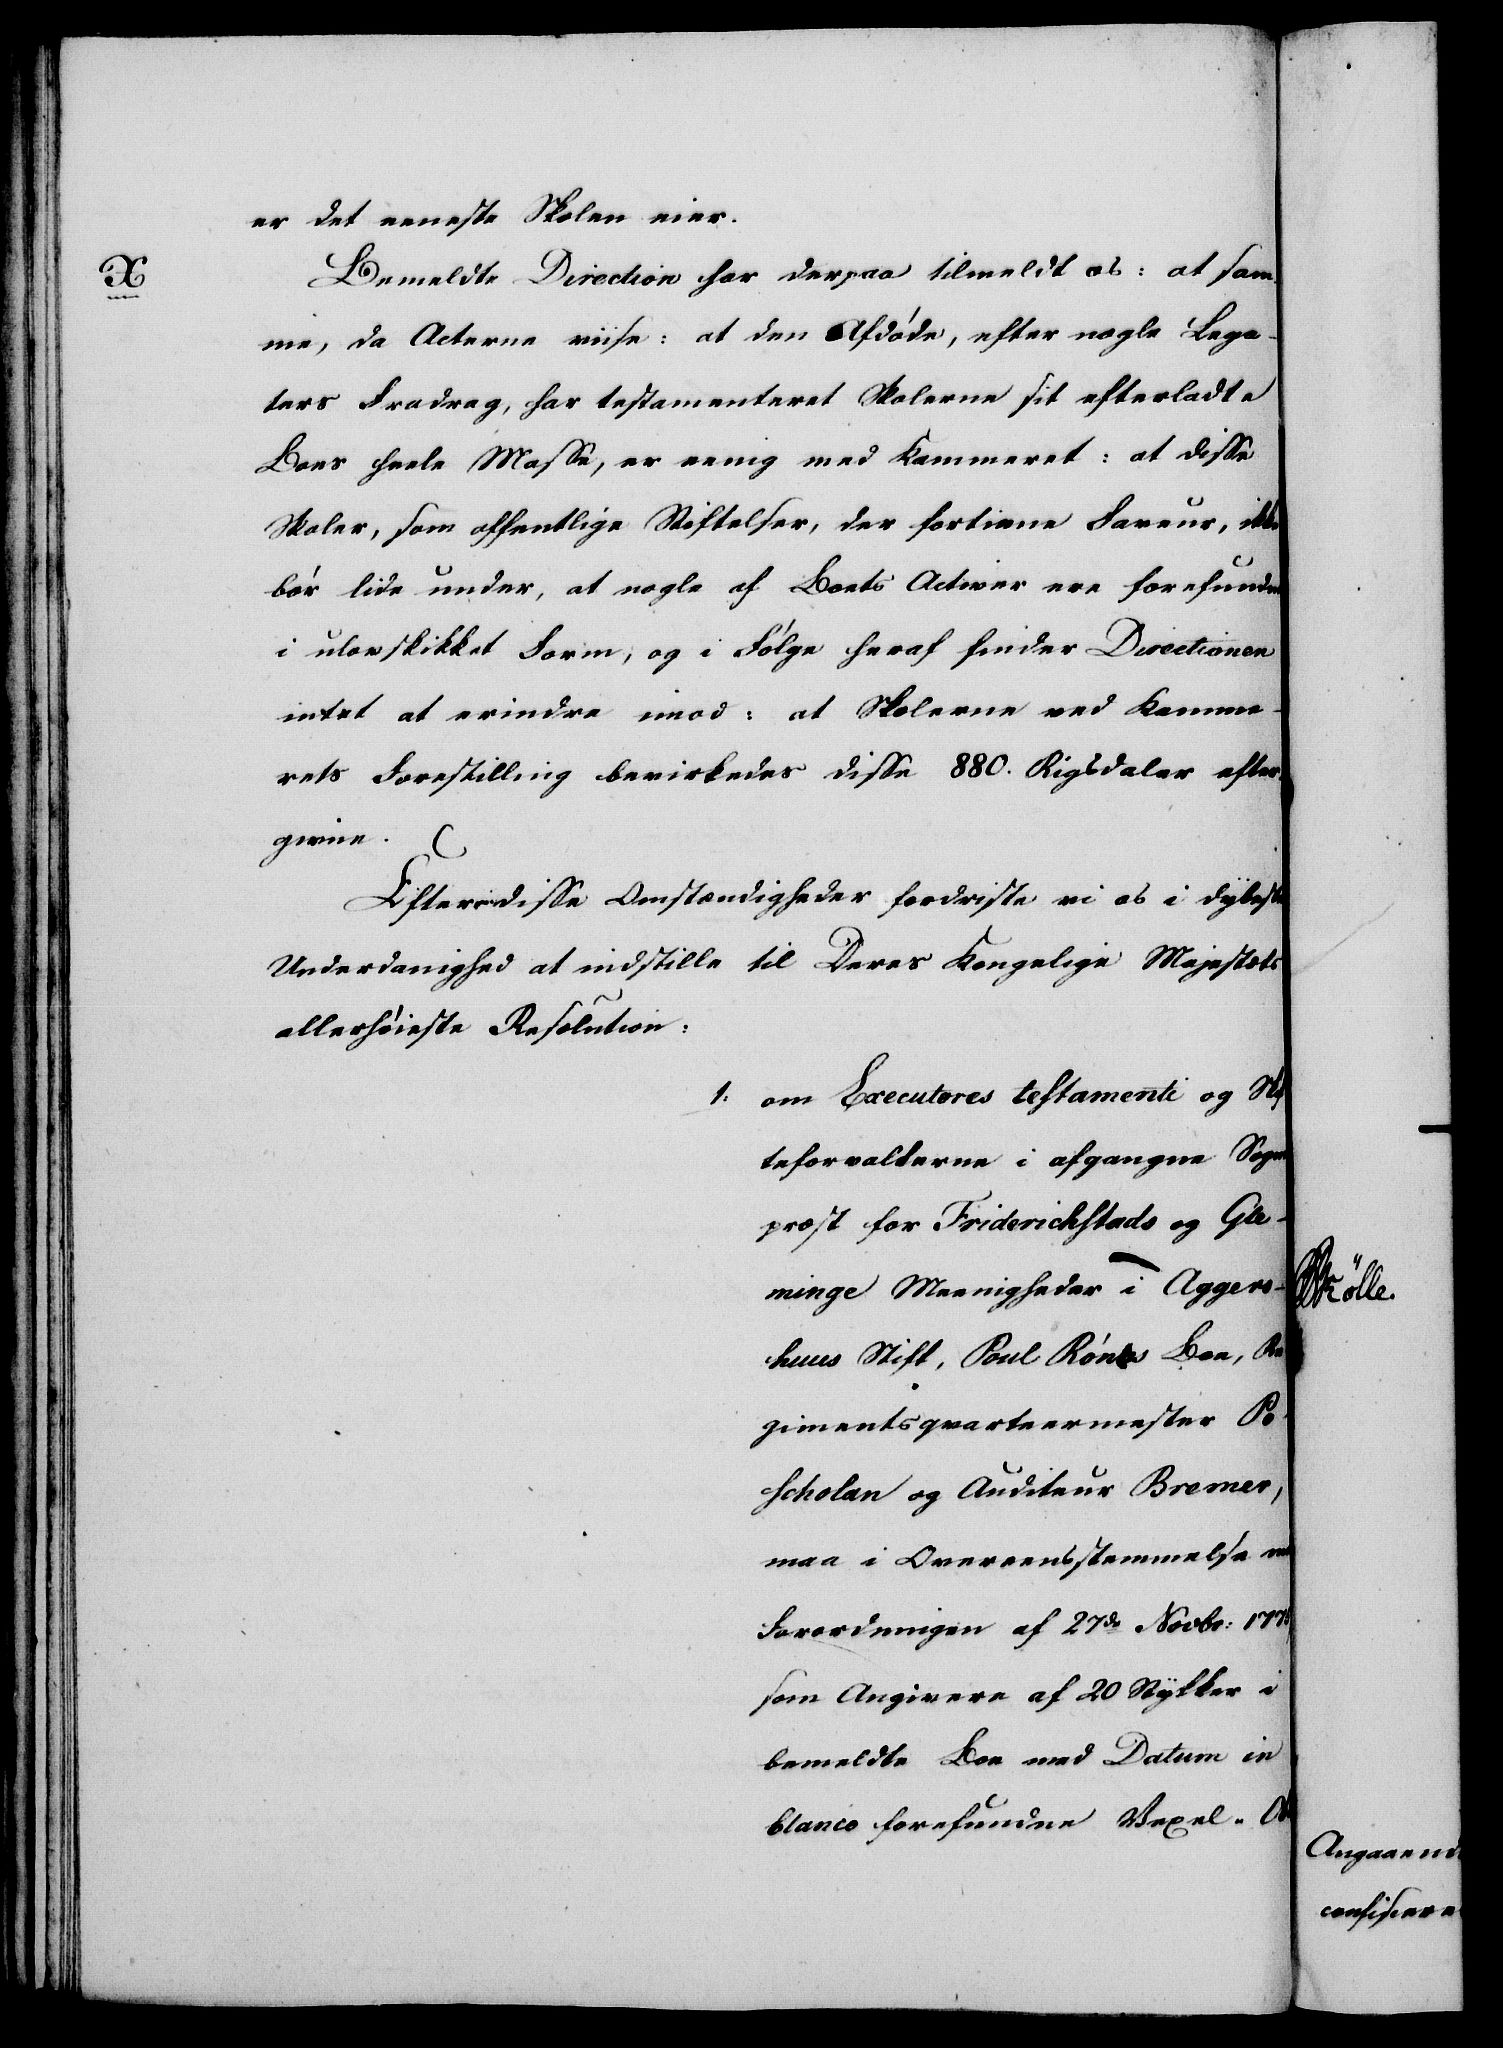 er det eeneste Skolen eier.
X
Bemeldte Direction har derpaa tilmeldt os: at sam-
me, da Acterne viise: at den Afdøde, efter nogle Lega-
ters Fradrag, har testamenteret Skolerne sit efterladte
Boes heele Masse, er eenig med Kammeret: at disse
Skoler, som offentlige Stiftelser, der fortiene Faveur, ikke
bør lide under, at nogle af Boets Activer ere forefundne
i ulovskikket Form, og i Følge heraf finder Directionen
intet at erindre imod: at Skolerne ved Kamme-
rets Forestilling bevirkedes disse 880. Rigsdaler efter-
givne.
Efter disse Omstændigheder fordriste vi os i dybeste
Underdanighed at indstille til Deres Kongelige Majestæts
allerhøieste Resolution:
1. om Executores testamenti og Skif
teforvalterne i afgangne Sogne
præst for Friderichstads og Gle-
minge Meenigheder i Aggers-
huus Stift, Poul Rönes Boe, Re
gimentsqvarteermester Po-
scholan og Auditeur Bremer,
maa i Overeensstemmelse med
Forordningen af 27de Novbr: 1775
som Angivere af 20 Stykker i
bemeldte Boe med Datum in
blanco forefundne Vexel- Ob
Skölle.
Angaaende
confiscere